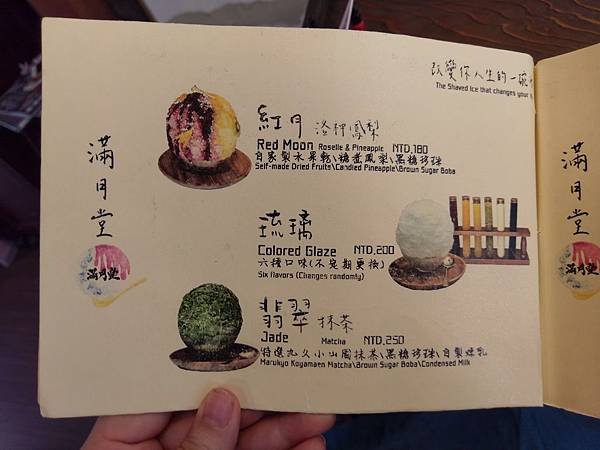 改變你人生的一碗
The Shaved Ice that changes your
滿月堂
滿月堂
紅月 洛神鳳梨
Red Moon Roselle & Pineapple NTD,180
自家製水果乾\糖煮鳳梨\黑糖珍珠
Self-made Dried Fruits\Candied Pineapple\Brown Sugar Boba
琉璃
Colored Glaze NTD,200
六種口味(不定期更換)
Six flavors (Changes randomly)
翡翠 抹茶
Jade Matcha NTD,250
特選丸久小山園抹茶\黑糖珍珠\自製煉乳
Marukyo Koyamaen Matcha\Brown Sugar Boba\Condensed Milk
滿月堂
滿月堂